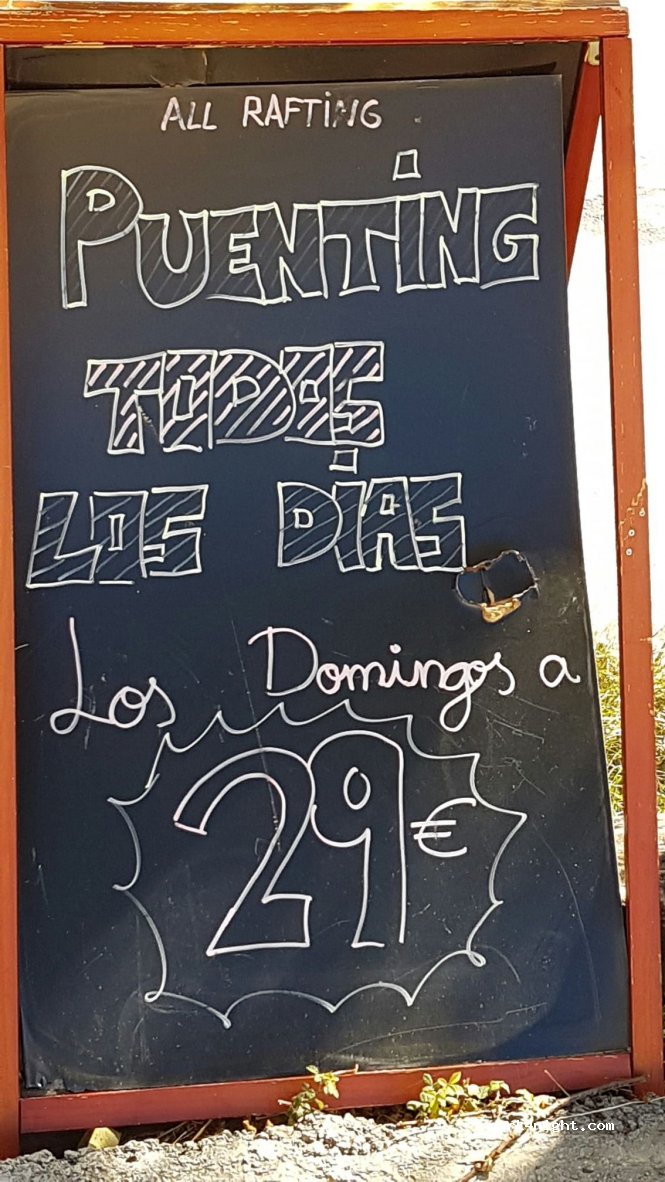 ALL RAFTING
PUENTING
TODOS
LOS DÍAS
Los Domingos a
29€